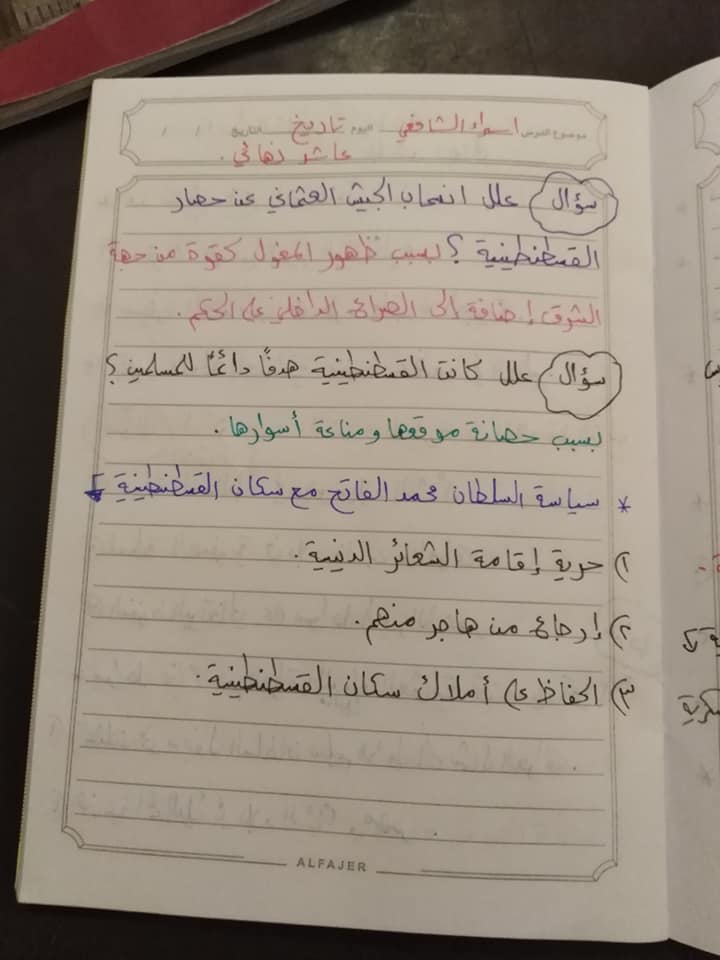 موضوع الدرس اسراء الشافعي اليوم تاريخ التاريخ / /
عاشر نهائي.
سؤال علل انسحاب الجيش العثماني عن حصار
القسطنطينية؟ بسبب ظهور المغول كقوة من جهة
الشرق إضافة إلى الصراع الداخلي على الحكم.
سؤال علل كانت القسطنطينية هدفًا دائمًا للمسلمين؟
بسبب حصانة موقعها ومناعة أسوارها.
* سياسة السلطان محمد الفاتح مع سكان القسطنطينية
١) حرية إقامة الشعائر الدينية.
٢) إرجاع من هاجر منهم.
٣) الحفاظ على أملاك سكان القسطنطينية.
ALFAJER